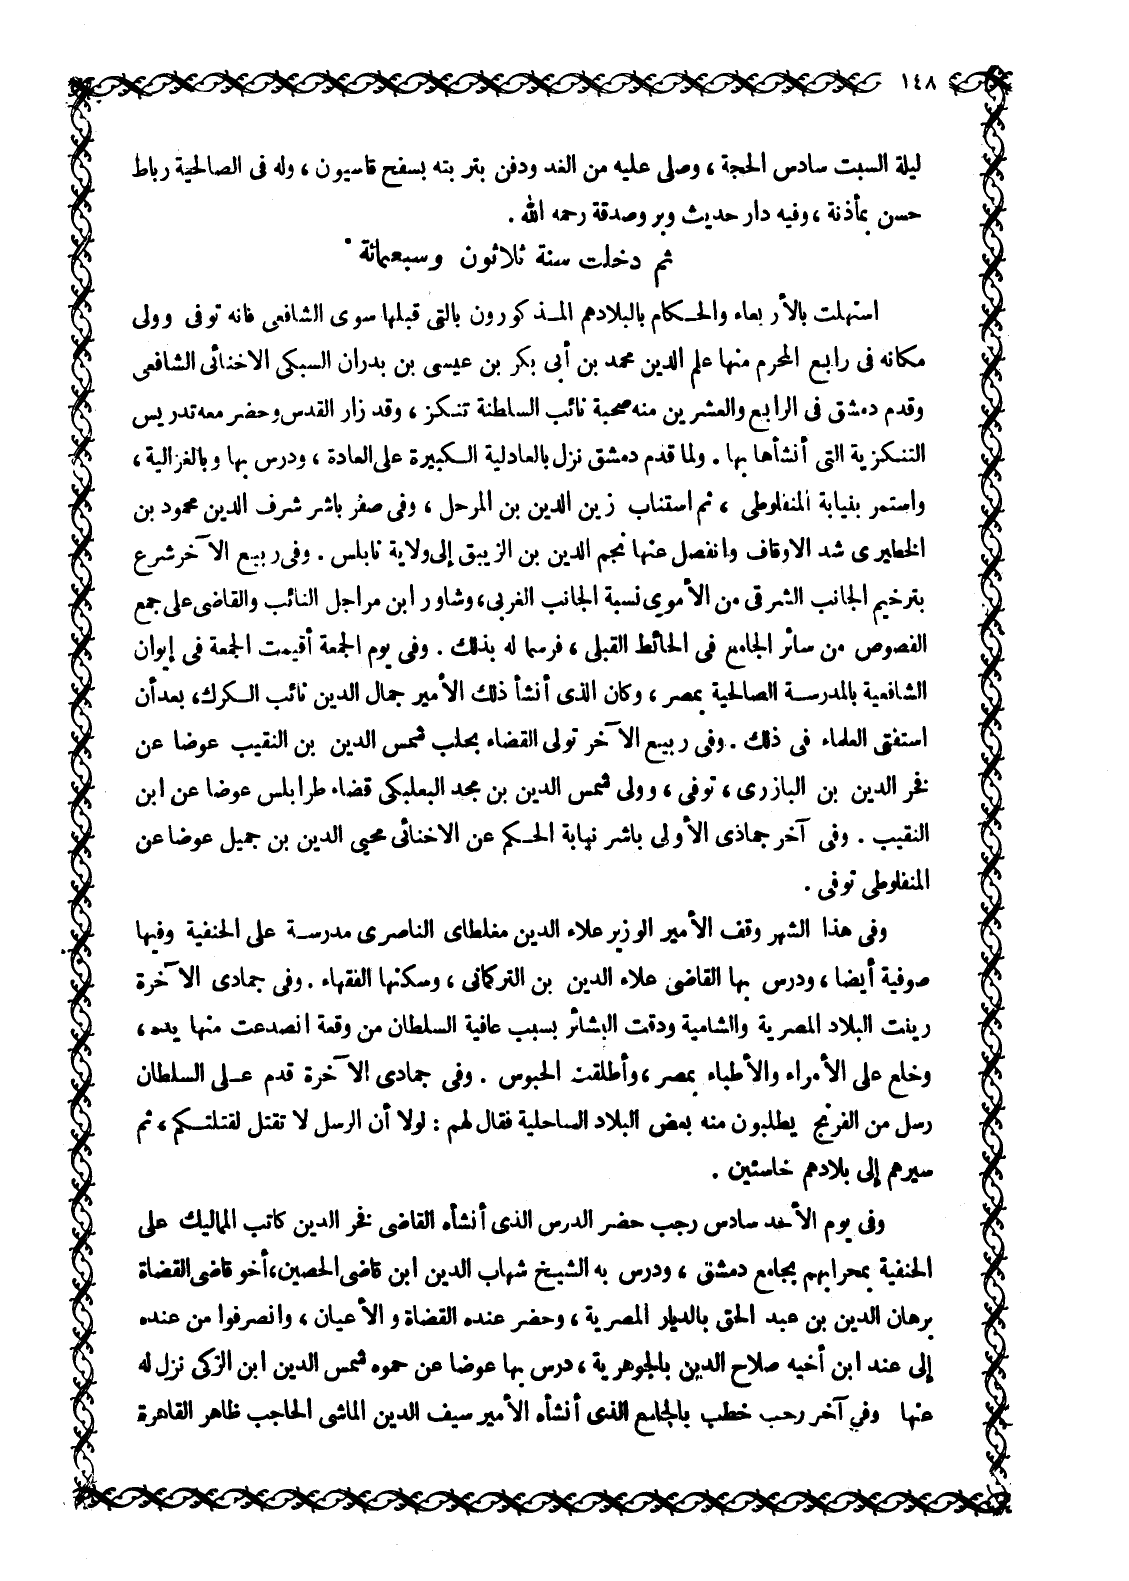 ١٤٨
ليلة السبت سادس الحجة ، وصلى عليه من الغد ودفن بتر بته بسفح قاسيون ، وله فى الصالحية رباط
حسن بمأذنة ، وفيه دار حديث وبر وصدقة رحمه الله .
ثم دخلت سنة ثلاثون وسبعمائة
استهلت بالأربعاء والحكام بالبلادهم المذكورون بالتى قبلها سوى الشافعى فانه توفى وولى
مكانه فى رابع المحرم منها علم الدين محمد بن أبى بكر بن عيسى بن بدران السبكى الاخنائى الشافعى
وقدم دمشق فى الرابع والعشرين منه صحبة نائب السلطنة تنكز ، وقد زار القدس وحضر معه تدريس
التنكزية التى أنشأها بها . ولما قدم دمشق نزل بالعادلية الكبيرة على العادة ، ودرس بها وبالغزالية ،
واستمر بنيابة المنفلوطى ، ثم استناب زين الدين بن المرحل ، وفى صفر باشر شرف الدين محمود بن
الخطيرى شد الاوقاف وانفصل عنها نجم الدين بن الزيبق إلى ولاية نابلس . وفى ربيع الآخر شرع
بترخيم الجانب الشرقى من الأموى نسبة الجانب الغربى ، وشاور ابن مراجل النائب والقاضى على جمع
الفصوص من سائر الجامع فى الحائط القبلى ، فرسما له بذلك . وفى يوم الجمعة أقيمت الجمعة فى إيوان
الشافعية بالمدرسة الصالحية بمصر ، وكان الذى أنشأ ذلك الأمير جمال الدين نائب الكرك ، بعد أن
استفتى العلماء فى ذلك . وفى ربيع الآخر تولى القضاء بحلب شمس الدين بن النقيب عوضا عن
فخر الدين بن البازرى ، توفى ، وولى شمس الدين بن مجد البعلبكى قضاء طرابلس عوضا عن ابن
النقيب . وفى آخر جماذى الأولى باشر نيابة الحكم عن الاخنائى محيى الدين بن جميل عوضا عن
المنفلوطى توفى .
وفى هذا الشهر وقف الأمير الوزير علاء الدين مغلطاى الناصرى مدرسة على الحنفية وفيها
صوفية أيضا ، ودرس بها القاضى علاء الدين بن التركمانى ، وسكنها الفقهاء . وفى جمادى الآخرة
زينت البلاد المصرية والشامية ودقت البشائر بسبب عافية السلطان من وقعة انصدعت منها يده ،
وخلع على الأمراء والأطباء بمصر ، وأطلقت الحبوس . وفى جمادى الآخرة قدم على السلطان
رسل من الفرنج يطلبون منه بعض البلاد الساحلية فقال لهم : لولا أن الرسل لا تقتل لقتلتكم ، ثم
سيرهم إلى بلادهم خاسئين .
وفى يوم الأحد سادس رجب حضر الدرس الذى أنشأه القاضى فخر الدين كاتب المماليك على
الحنفية بمحرابهم بجامع دمشق ، ودرس به الشيخ شهاب الدين ابن قاضى الحصين ، أخو قاضى القضاة
برهان الدين بن عبد الحق بالديار المصرية ، وحضر عنده القضاة والأعيان ، وانصرفوا من عنده
إلى عند ابن أخيه صلاح الدين بالجوهرية ، درس بها عوضا عن حموه شمس الدين ابن الزكى نزل له
عنها وفي آخر رجب خطب بالجامع الذى أنشأه الأمير سيف الدين الماشى الحاجب ظاهر القاهرة